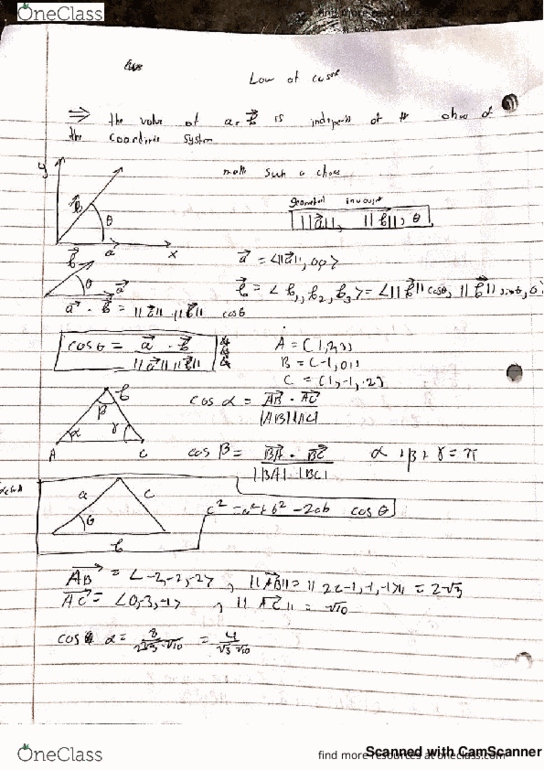 OneClass
Law of cosine
⇒ the value of a · b⃗ is independent of the choice of
the coordinate system
y
make such a choice
geometrical invariant
||a⃗||, ||b⃗||, θ
b⃗
θ
a⃗
x
a⃗ = <||a⃗||, 0, 0>
b⃗
θ
a⃗
b⃗ = <b₁, b₂, b₃> = <||b⃗|| cosθ, ||b⃗|| sinθ, 0
a⃗ · b⃗ = ||a⃗|| ||b⃗|| cosθ
cosθ = a⃗ · b⃗ / ||a⃗|| ||b⃗||
A = (1,2,3)
B = (-1,0,1)
C = (1,-1,2)
B
β
α
γ
A
C
cos α = AB · AC / |AB||AC|
cos β = BA · BC / |BA| · |BC|
α + β + γ = π
a
c
θ
b
c² = a² + b² - 2ab cos θ
AB = <-2,-2,-2> , ||AB|| = || 2<-1,-1,-1>|| = 2√3
AC = <0,-3,-1> , ||AC|| = √10
cos α = 8/2√3·√10 = 4/√3 √10
OneClass
find more resources at oneclass.com
Scanned with CamScanner